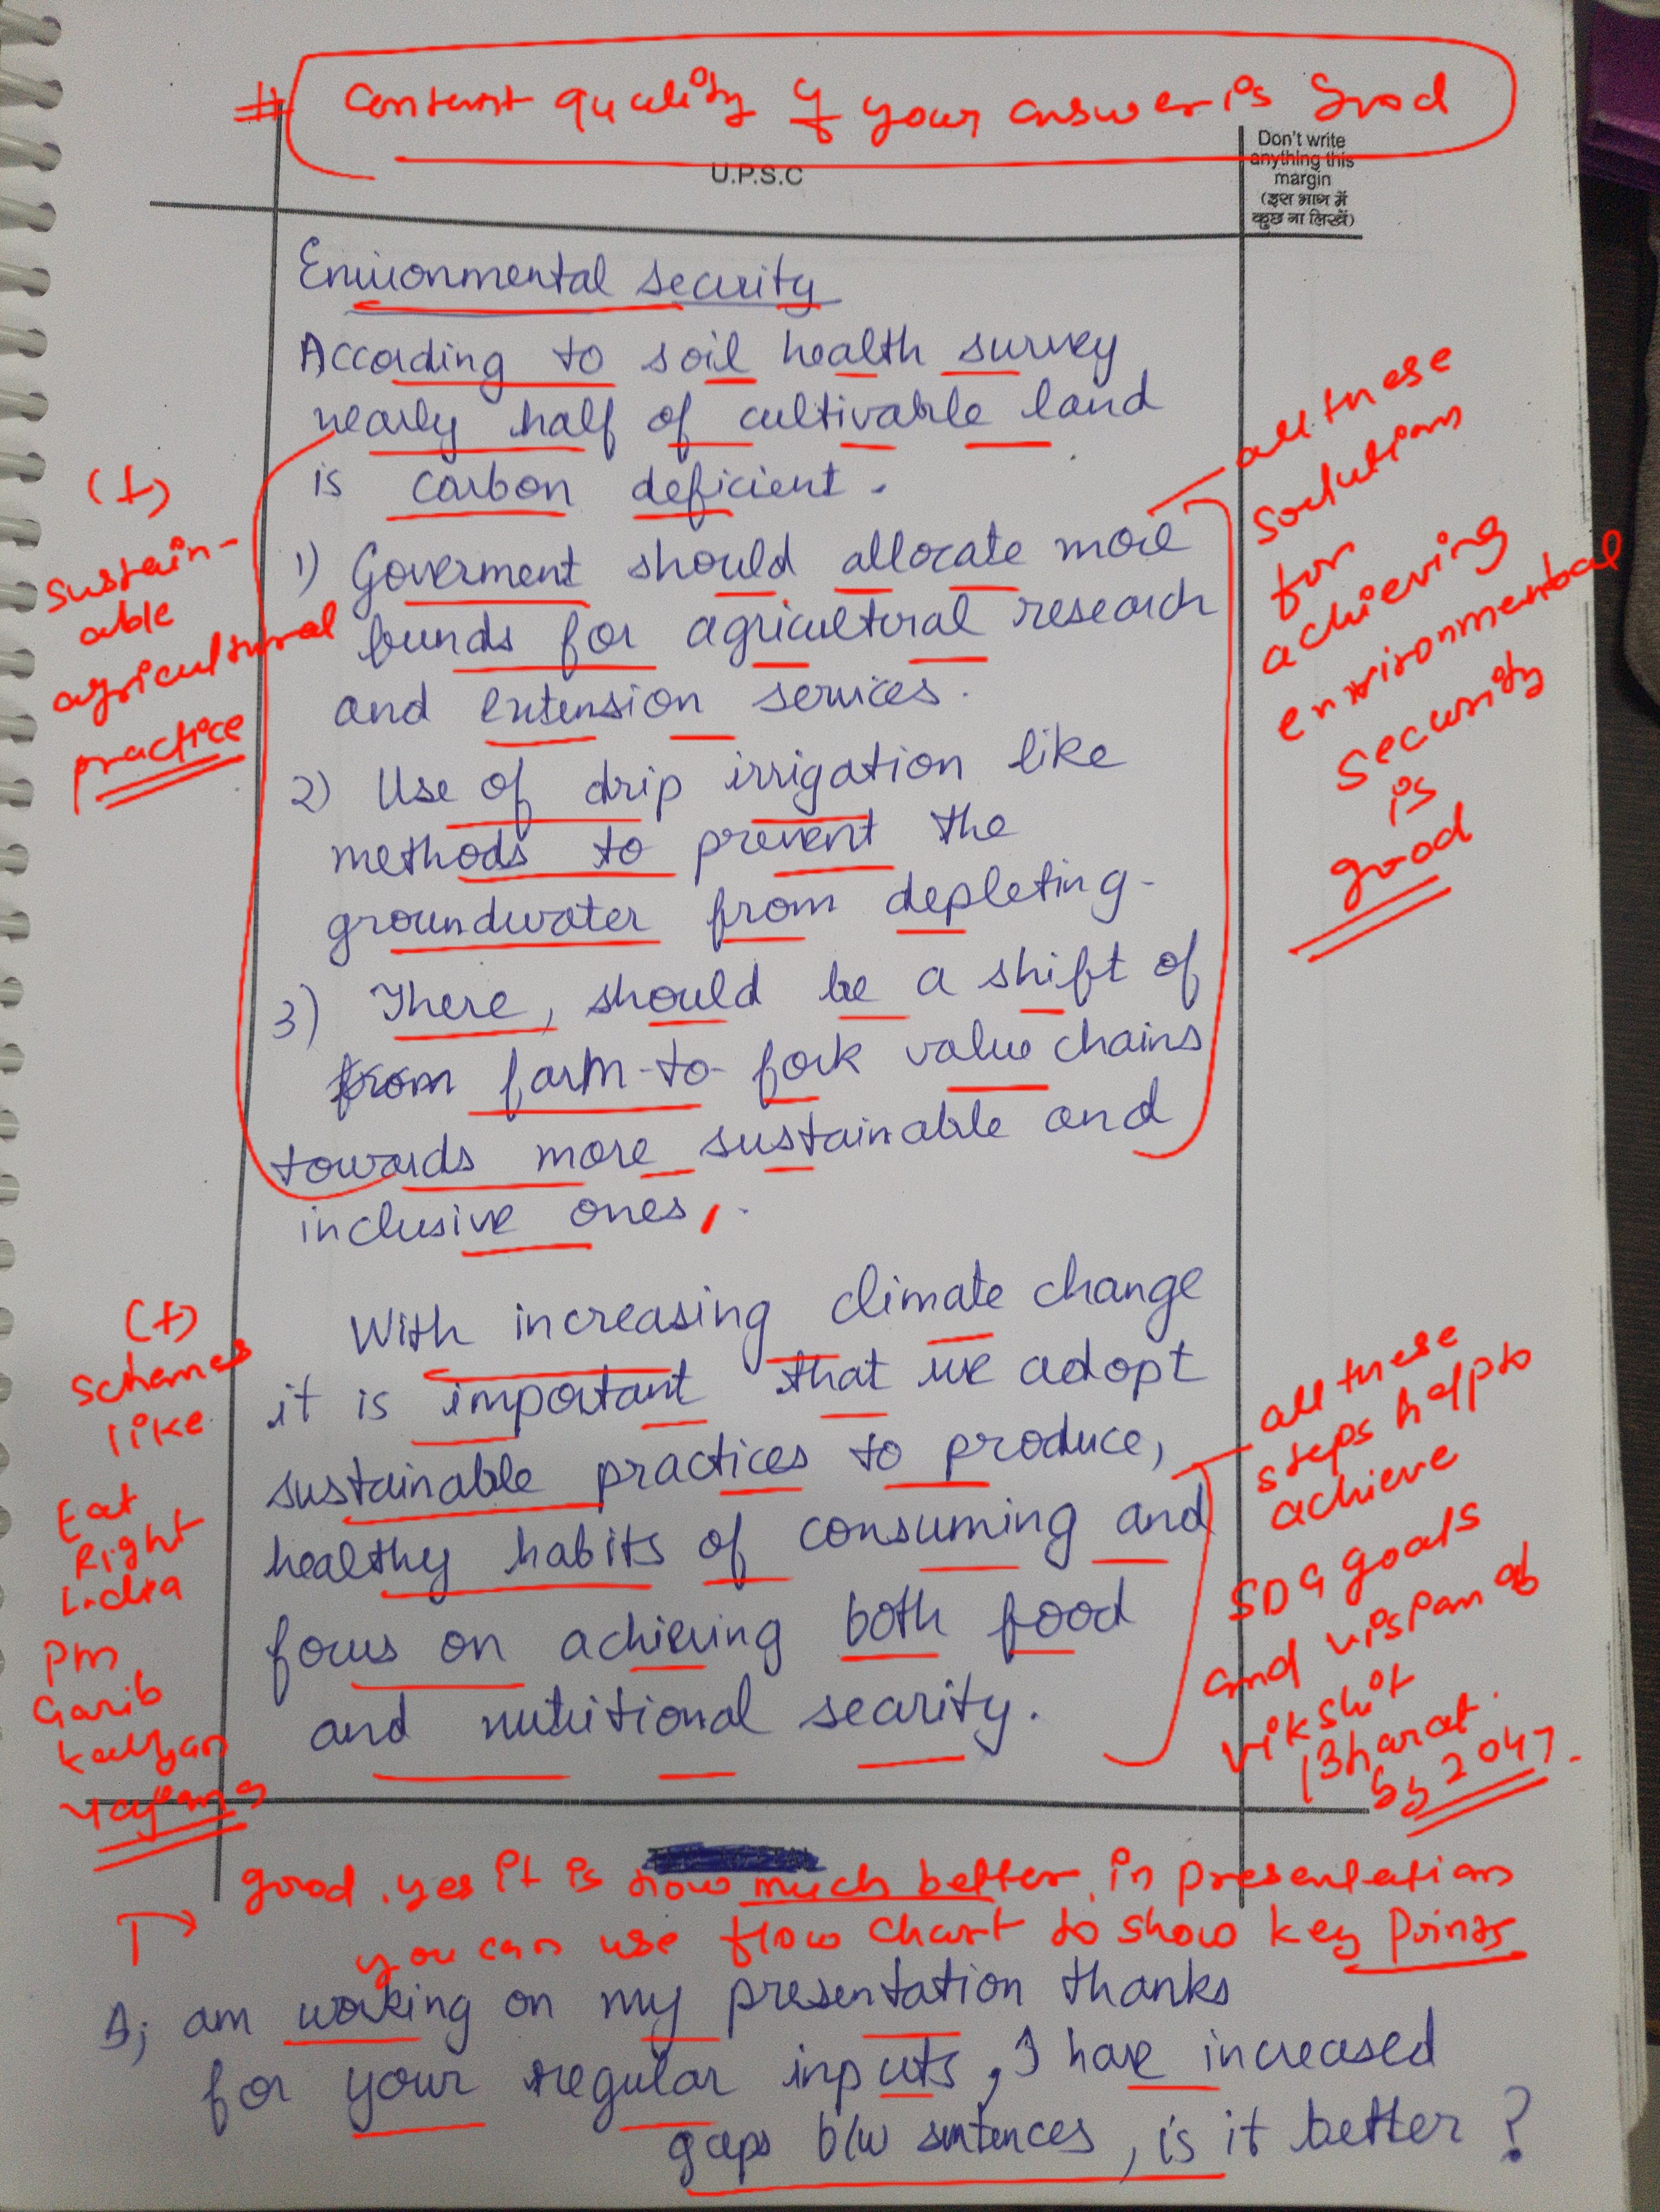 # Content quality of your answer is good
U.P.S.C
Don't write
anything this
margin
(इस भाग में
कुछ ना लिखें)
Environmental security
According to soil health survey
nearly half of cultivable land
is carbon deficient.
1) Goverment should allocate more
funds for agricultural research
and extension services.
2) Use of drip irrigation like
methods to prevent the
groundwater from depleting.
3) There, should be a shift of
from farm-to-fork value chains
towards more sustainable and
inclusive ones,.
(+)
sustain-
able
agricultural
practice
all these
solutions
for
achieving
environmental
security
is
good
With increasing climate change
it is important that we adopt
sustainable practices to produce,
healthy habits of consuming and
focus on achieving both food
and nutritional security.
(+)
schemes
like
Eat
Right
India
PM
Garib
Kalyan
all these
steps help to
achieve
SDG goals
and of
Vikshit
Bharat
by 2047.
good. yes it is now much better. in presentation
you can use flow chart to show key points
am working on my presentation thanks
for your regular inputs, I have increased
gaps b/w sentences, is it better?